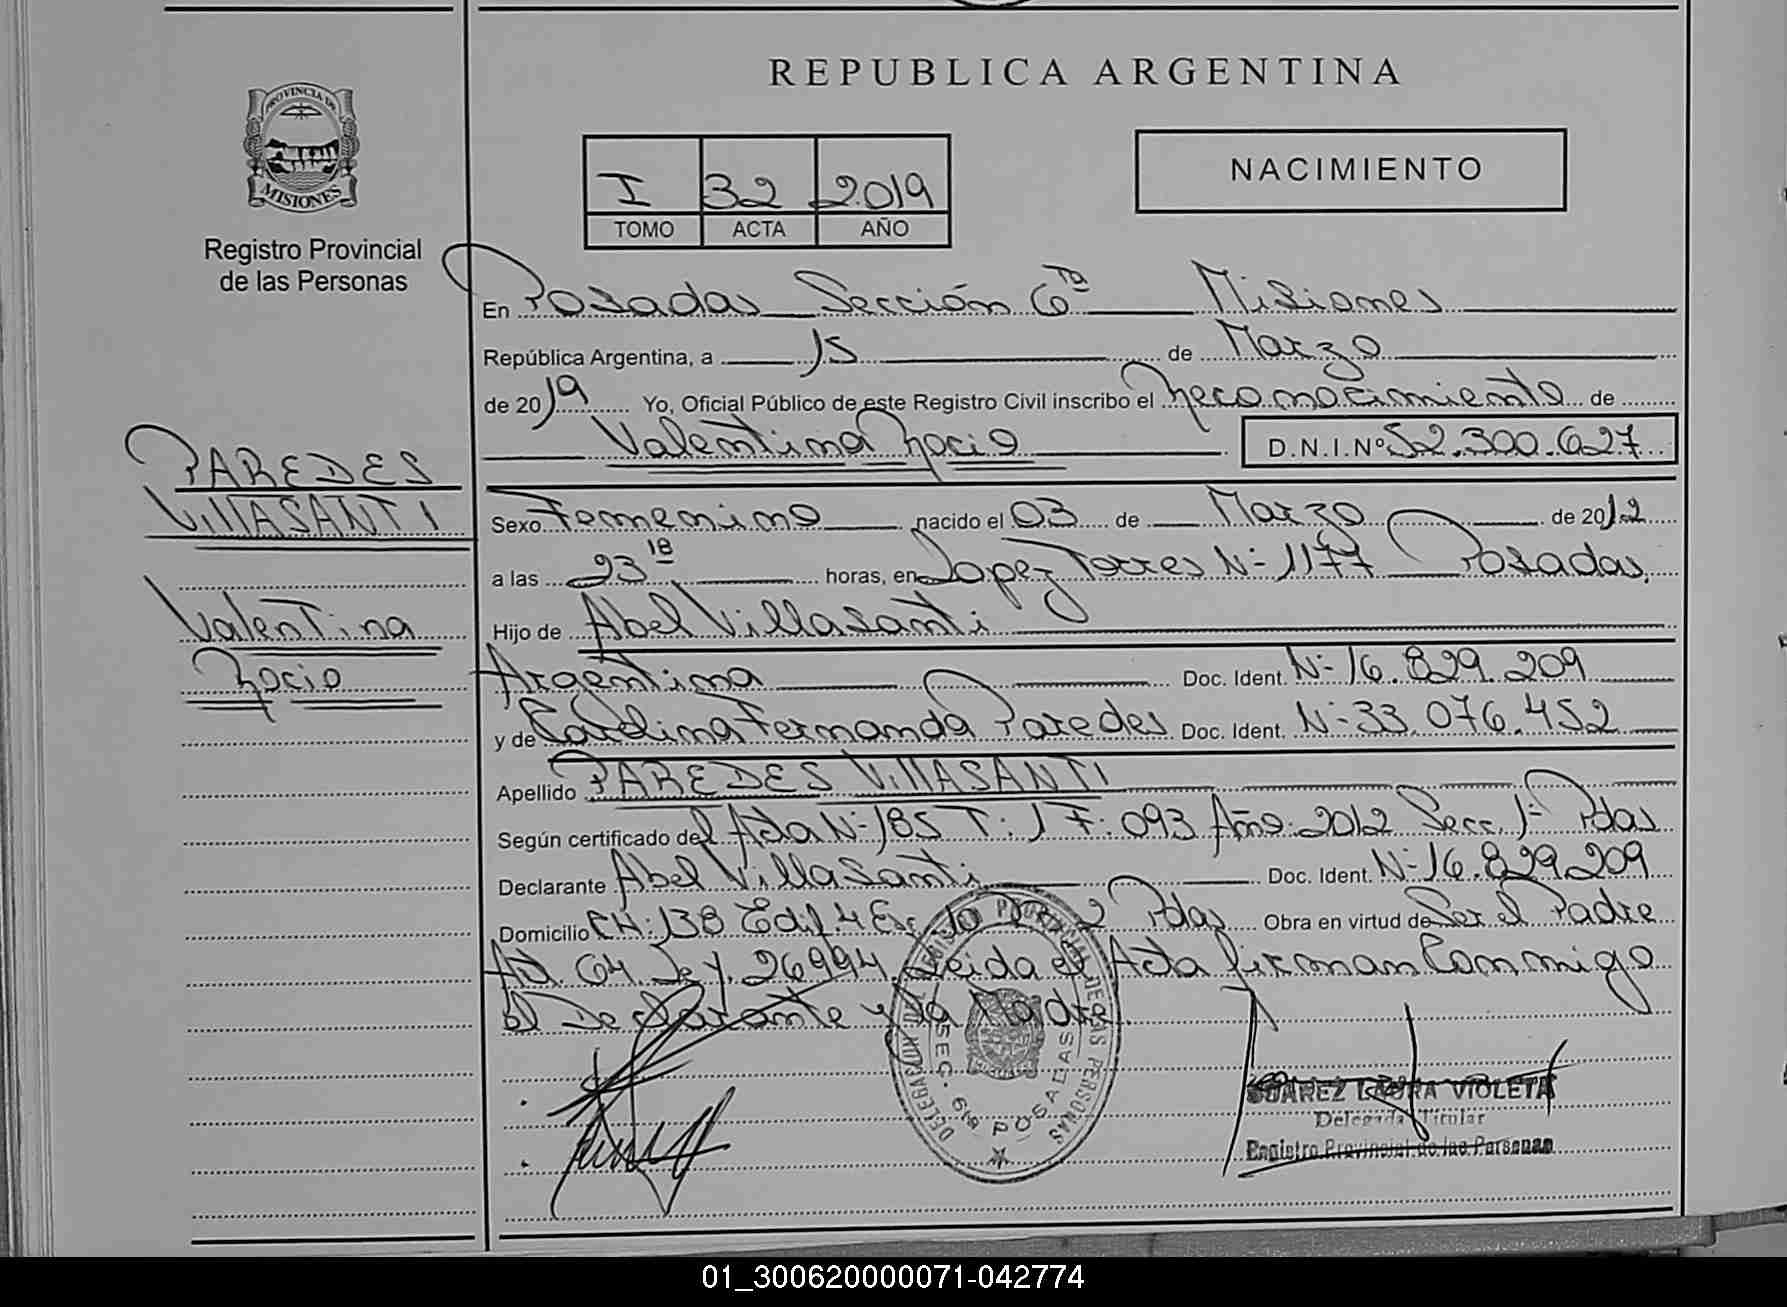 REPUBLICA ARGENTINA
PROVINCIA DE
MISIONES
Registro Provincial
de las Personas
I 32 2019
TOMO ACTA AÑO
NACIMIENTO
En Posadas Sección 6ta Misiones
República Argentina, a 15 de Marzo
de 2019 Yo, Oficial Público de este Registro Civil inscribo el Reconocimiento de
Valentina Rocio D.N.I. Nº 52.300.627
PAREDES
VILLASANTI
Valentina
Rocio
Sexo Femenino nacido el 03 de Marzo de 2012
a las 23 18 horas, en Lopez Torres Nº 1177 Posadas.
Hijo de Abel Villasanti
Argentina Doc. Ident. Nº 16.829.209
y de Carolina Fernanda Paredes Doc. Ident. Nº 33.076.452
Apellido PAREDES VILLASANTI
Según certificado del Acta Nº 185 T: 1 F: 093 Año: 2012 Secc. 1ª Pdas
Declarante Abel Villasanti Doc. Ident. Nº 16.829.209
Domicilio CH: 138 Edif. 4 Esc. 2 Pdas Obra en virtud de Ser el Padre
Art. 64 Ley. 26994. Leida el Acta firman Conmigo
El Declarante y la Madre.
DELEGACION REGISTRO PROVINCIAL DE LAS PERSONAS
SEC. 6ta POSADAS
SUAREZ LAURA VIOLETA
Delegada Titular
Registro Provincial de las Personas
01_300620000071-042774